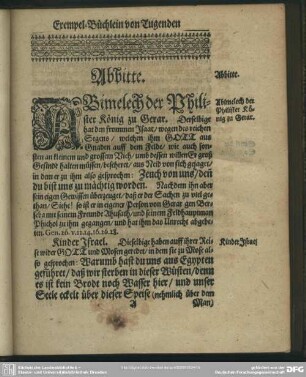 Exempel-Büchlein von Tugenden
Abbitte.
Abbitte.
ABimelech der Phili-
ster König zu Gerar. Derselbige
hat den frommen Isaac, wegen des reichen
Segens / welchen ihm GOTT aus
Gnaden auff dem Felde, wie auch son-
sten an kleinem und grossem Vieh, umb dessen willen Er groß
Gesinde halten müssen, bescheret, aus Neid von sich gejaget,
in dem er zu ihm also gesprochen: Zeuch von uns / denn
du bist uns zu mächtig worden. Nachdem ihn aber
sein eigen Gewissen überzeuget, daß er der Sachen zu viel ge-
than, Siehe! so ist er in eigener Person von Gerar gen Ber-
seba mit seinem Freunde Ahusath, und seinem Feldhauptmann
Phichol zu ihm gegangen, und hat ihm das Unrecht abgebe-
ten. Gen. 26. v. 12. 14. 16. 26. 28.
Abimelech der
Philister Kö-
nig zu Gerar.
Kinder Israel. Dieselbige haben auff ihrer Rei-
se wider GOTT und Mosen geredet, in dem sie zu Mose al-
so gesprochen: Warumb hast du uns aus Egypten
geführet / daß wir sterben in dieser Wüsten / denn
es ist kein Brodt noch Wasser hier / und unser
Seele eckelt über dieser Speise (nehmlich über dem
Kinder Israel
A
Man)